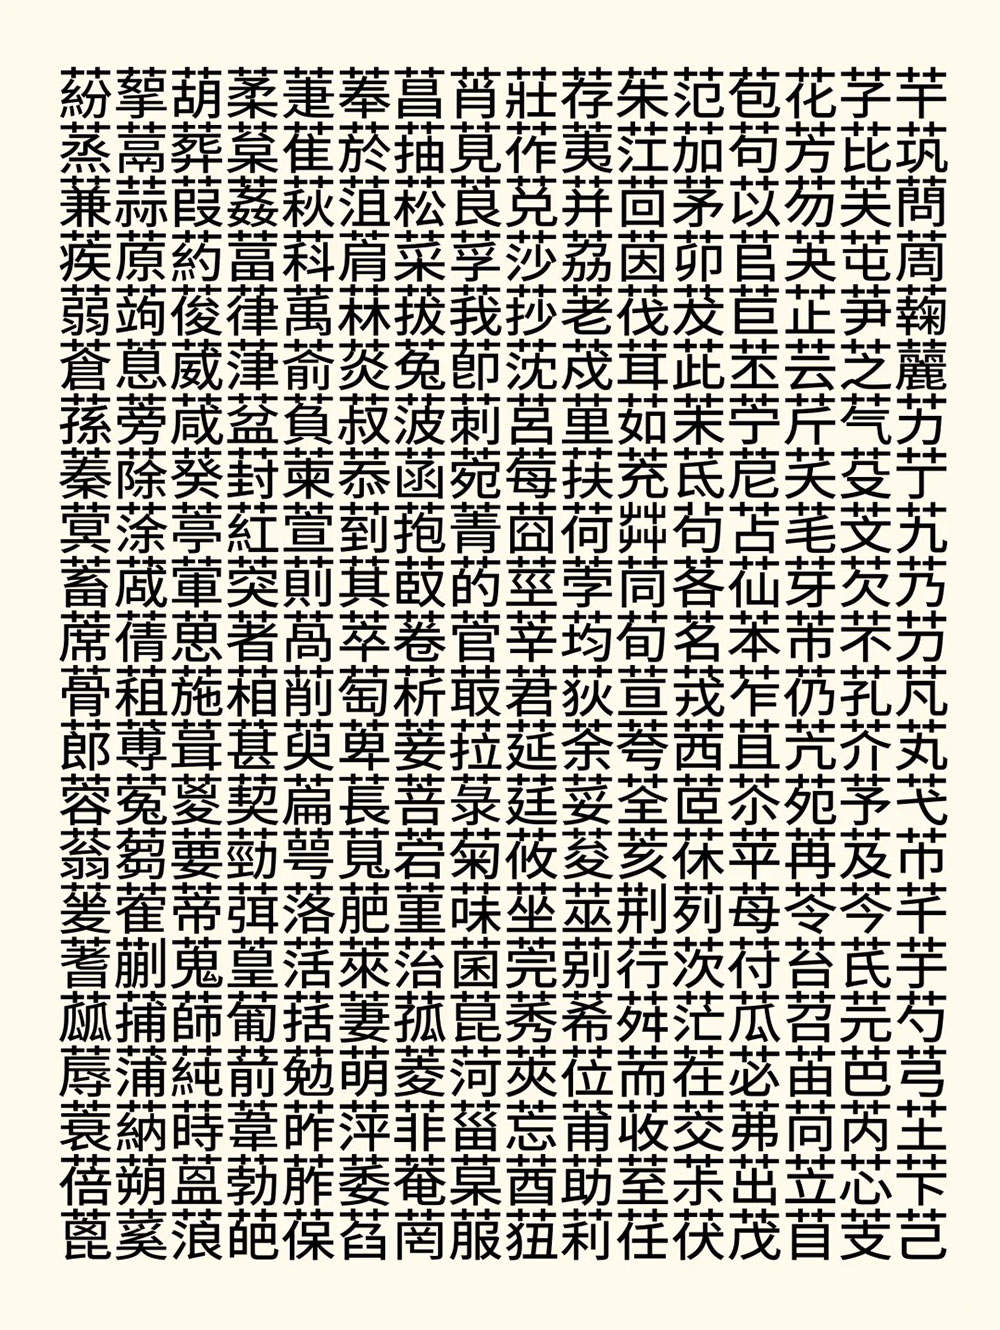 芉茿䓟蘜䕻艻艼艽艿芀芃芄芅芇芊芋芍芎芏芐芑
芓芘芙芚芛芝芞芟芠芡芣芤芥芧芨芩芪芫芭芮芯芰
花芳芴芵芷芸芹芺芼芽芾芿苀苑苒苓苔苕苗苘苙苜
苞苟苡苢苣苤苧苨苫苮苯苲苴苶苹苺苻苽苾茀茁茂
范茄茅茆茇茈茉茋茍茖茗茙茜茞茠茢茨茫茬茭茮茯
茱茳茴茵茷茸茹茺茻茼荀荁荂荃荄荆荇荈荋荍荎荏
荐荑荓荔荖荗荲荴荷荸荺荻荼荽荾莁莂莃莅莆莇莉
莊莋莌莎莏莐莒莓莔莖莘莙莚莛莜莝莞莠莢莣莤莥
莦莧莨莩莪莭莿菀菁菂菅菆菈菉菊菋菌菎菏菑菒菔
菖菗菘菜菝菟菠菡菢菣菤菥菨菩菪董菭菰菱菲菴菵
菶菸菹菺菻菼菽菾菿萁萃萄萆萇萈萉萊萋萌萍萎萏
萐萑萩萪萬萮萯萰萱萴萵萷萸萹萼落萿葀葂葃葄葆
葇葈葌葍葎葏葐葑葒葖著葙葚葜葝葞葟葡葥葦葧葩
葫葬葭葯葰葳葴葵葶葷葸葹葺葼葽蒂蒐蒒蒓蒔蒕蒗
蒘蒚蒜蒝蒟蒠蒡蒢蒤蒧蒨蒩蒪蒬蒭蒮蒯蒱蒲蒳蒴蒵
蒶蒸蒹蒺蒻蒼蓀蓁蓂蓄蓆蓇蓈蓉蓊蓌蓍蓏蓐蓑蓓蓖